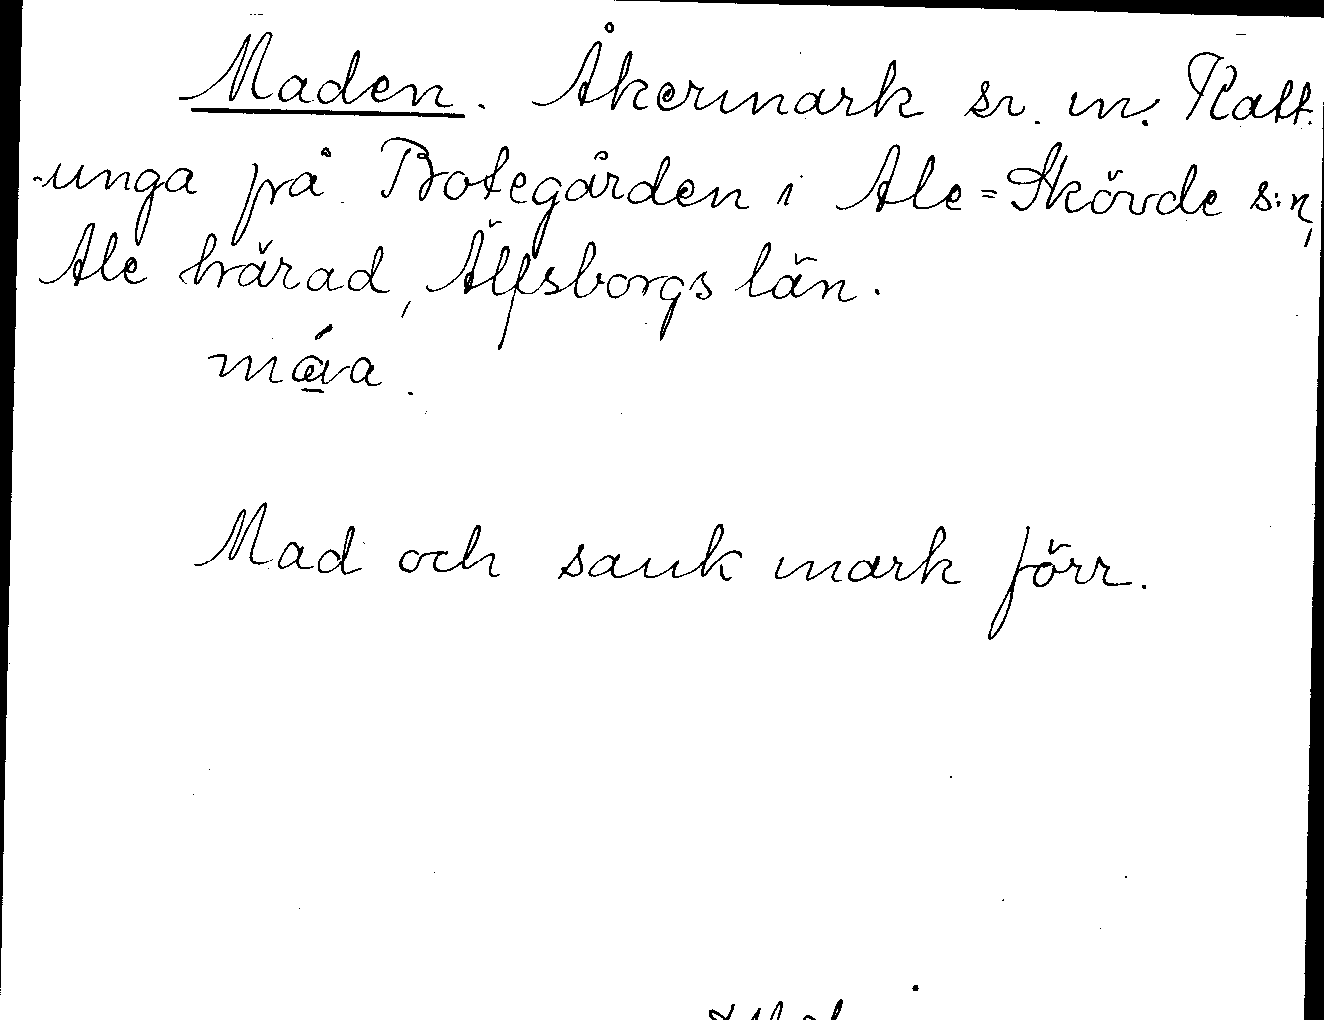 Maden. Åkermark sr. m. Katt-
unga på Botegården i Ale=Skövde s:n,
Ale härad, Älfsborgs län.
Mad och sank mark förr.